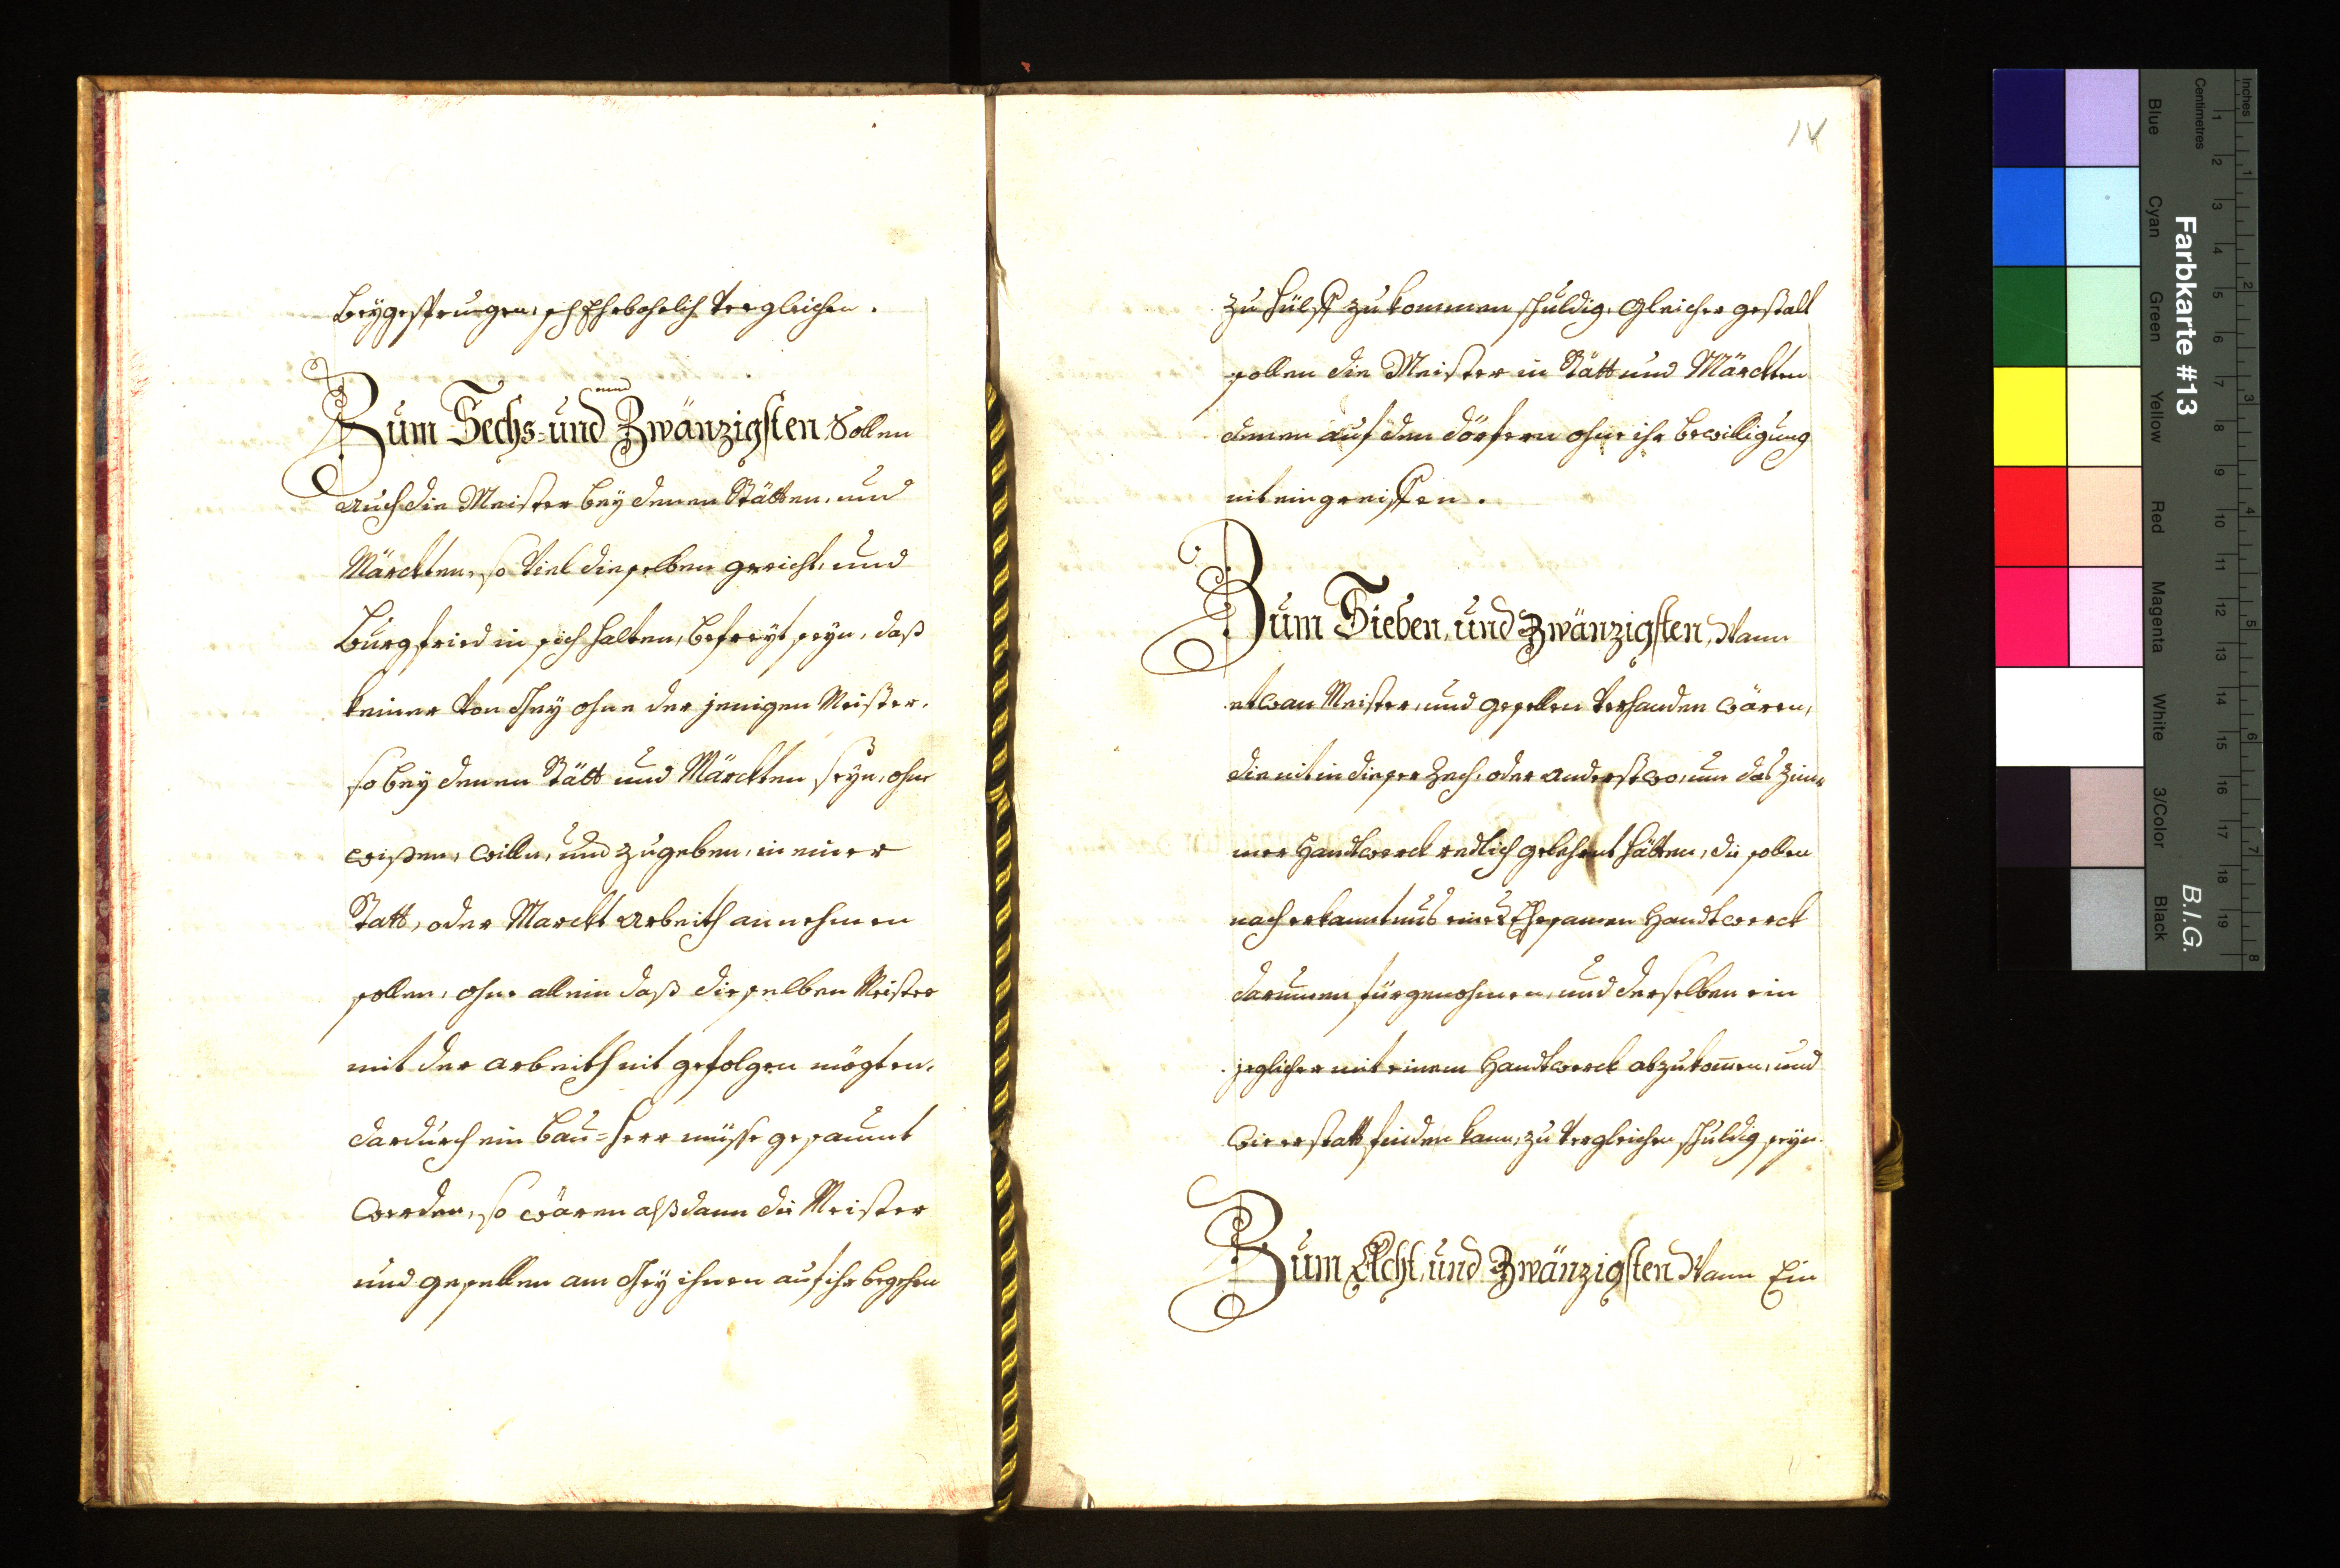 beygesprungen, sich Ehebahrlich vergleichen.
Zum Sechs- und Zwänzigsten Sollen
auch die Meister bey denen Stätten, und
Märckten, so viel dieselben gericht, und
Burgfried in sich halten, befreyt seyn, daß
keiner von Gey ohne der jenigen Meister,
so bey denen Stätt und Märckten seyn, ohne
wißen, willn, und zugeben, in einer
Statt, oder Marckt Arbeith annehmen
sollen, ohne allein daß dieselben Meister
mit der arbeith nit gefolgen mögten,
dardurch ein bau=herr müsse gesaumt
werden, so wären alßdann die Meister
und gesellen am Gey ihnen auf ihr begehen
14
zu hülff zu kommen schuldig, Gleicher gestalt
sollen die Meister in Stätt und Märckten
denen auf den dörfern ohne ihr bewilligung
nit eingreiffen.
Zum Sieben, und Zwänzigsten, Wann
etwan Meister, und gesellen verhanden wären,
die nit in dieser Zech, oder anderstwo, um das Zim=
mer Handtwerck redlich gelehrnt hätten, die sollen
nach erkanntnus eines Ehrsamen Handtwerck
darumen fürgenohmen, und derselben ein
jeglicher mit einem Handtwerck abzukommen, und
wie er statt finden kann, zu vergleichen schuldig seyn.
Zum Acht, und Zwänzigsten Wann Ein
Farbkarte #13
B.I.G.
Inches
Centimetres
Blue
Cyan
Green
Yellow
Red
Magenta
White
3/Color
Black
1 2 3 4 5 6 7 8 9 10 11 12 13 14 15 16 17 18 19
1 2 3 4 5 6 7 8